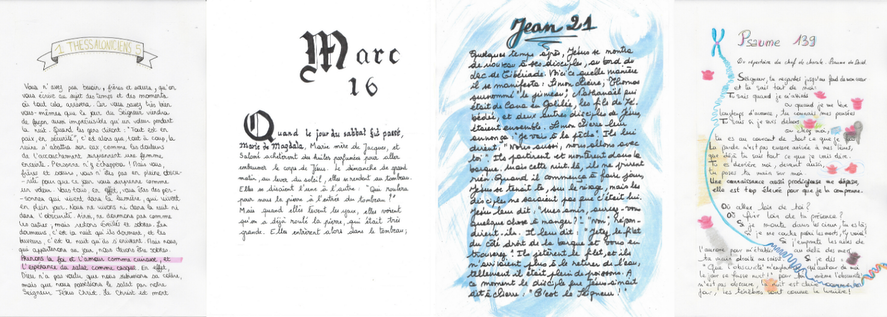 1 THESSALONICIENS 5
Vous n'avez pas besoin, frères et sœurs, qu'on
vous écrive au sujet des temps et des moments
où tout cela arrivera. Car vous savez très bien
vous-mêmes que le jour du Seigneur viendra
de façon aussi imprévisible qu'un voleur pendant
la nuit. Quand les gens diront: "Tout est en
paix, en sécurité", c'est alors que tout à coup, la
ruine s'abattra sur eux, comme les douleurs
de l'accouchement surprennent une femme
enceinte. Personne n'y échappera! Mais vous,
frères et sœurs, vous n'êtes pas en pleine obscu-
rité pour que ce jour vous surprenne comme
un voleur. Vous tous, en effet, vous êtes des per-
sonnes qui vivent dans la lumière, qui vivent
en plein jour. Nous ne vivons ni dans la nuit ni
dans l'obscurité. Ainsi, ne dormons pas comme
les autres, mais restons éveillés et sobres. Les
dormeurs, c'est la nuit qu'ils dorment, et les
buveurs, c'est la nuit qu'ils s'enivrent. Mais nous,
qui appartenons au jour, nous devons être sobres.
Prenons la foi et l'amour comme cuirasse, et
l'espérance du salut comme casque. En effet,
Dieu n'a pas voulu que nous subissions sa colère,
mais que nous possédions le salut par notre
Seigneur Jésus Christ. Le Christ est mort
Marc
16
Quand le jour du sabbat fut passé,
Marie de Magdala, Marie mère de Jacques, et
Salomé achetèrent des huiles parfumées pour aller
embaumer le corps de Jésus. Le dimanche de grand
matin, au lever du soleil, elles se rendent au tombeau.
Elles se disaient l'une à l'autre: "Qui roulera
pour nous la pierre à l'entrée du tombeau?"
Mais quand elles lèvent les yeux, elles voient
qu'on a déjà roulé la pierre, qui était très
grande. Elles entrèrent alors dans le tombeau;
Jean 21
Quelques temps après, Jésus se montra
de nouveau à ses disciples, au bord du
lac de Tibériade. Voici de quelle manière
il se manifesta: Simon Pierre, Thomas
surnommé "le jumeau", Nathanaël qui
était de Cana en Galilée, les fils de Zé-
bédée, et deux autres disciples de Jésus,
étaient ensemble. Simon Pierre leur
annonça "Je vais à la pêche". Ils lui
dirent: "Nous aussi, nous allons avec
toi". Ils partirent et montèrent dans la
barque. Mais cette nuit là, ils ne prirent
rien. Quand il commença à faire jour,
Jésus se tenait là, sur le rivage, mais les
disciples ne savaient pas que c'était lui.
Jésus leur dit: "Mes amis, avez-vous
quelque chose à manger?" "non", répon-
dirent-ils. Il leur dit: "Jetez le filet
du côté droit de la barque et vous en
trouverez". Ils jetèrent le filet, et ils
n'arrivaient plus à le retirer de l'eau,
tellement il était plein de poissons. A
ce moment le disciple que Jésus aimait
dit à Pierre: "C'est le Seigneur!"
Psaume 139
Du répertoire du chef de chorale. Psaume de David.
Seigneur, tu regardes jusqu'au fond de mon cœur
et tu sais tout de moi:
Tu sais quand je m'assieds
ou quand je me lève
Longtemps d'avance, tu connais mes pensées
Tu sais si je suis dehors
ou chez moi,
tu es au courant de tout ce que je
La parole n'est pas encore arrivée à mes lèvres,
que déjà tu sais tout ce que je vais dire.
Tu es derrière moi, devant aussi,
tu poses ta main sur moi.
Une connaissance aussi prodigieuse me dépasse,
elle est trop élevée pour que je la comprenne.
Où aller loin de toi?
Où fuir loin de ta présence?
Si je monte dans les cieux, tu es là;
Si je me couche parmi les morts, t'y voici.
Si j'emprunte les ailes de
l'aurore pour m'établir au delà des mers,
ta main droite me saisit. Si je dis:
"Que l'obscurité m'engloutisse, qu'autour de moi
le jour se fasse nuit!" pour toi, même l'obscurité
n'est pas obscure, la nuit est claire comme le
jour, les ténèbres sont comme la lumière!